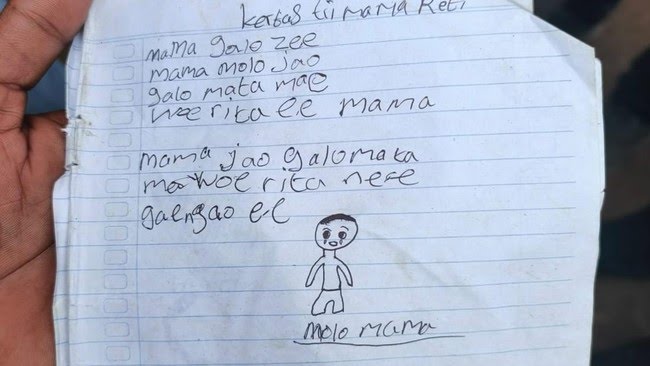 kertas tii mama Reti
mama galo zee
mama molo jao
galo mata mae
woe rita ee mama
mama jao galo mata
mae woe rita nee
gaengao ee
molo mama